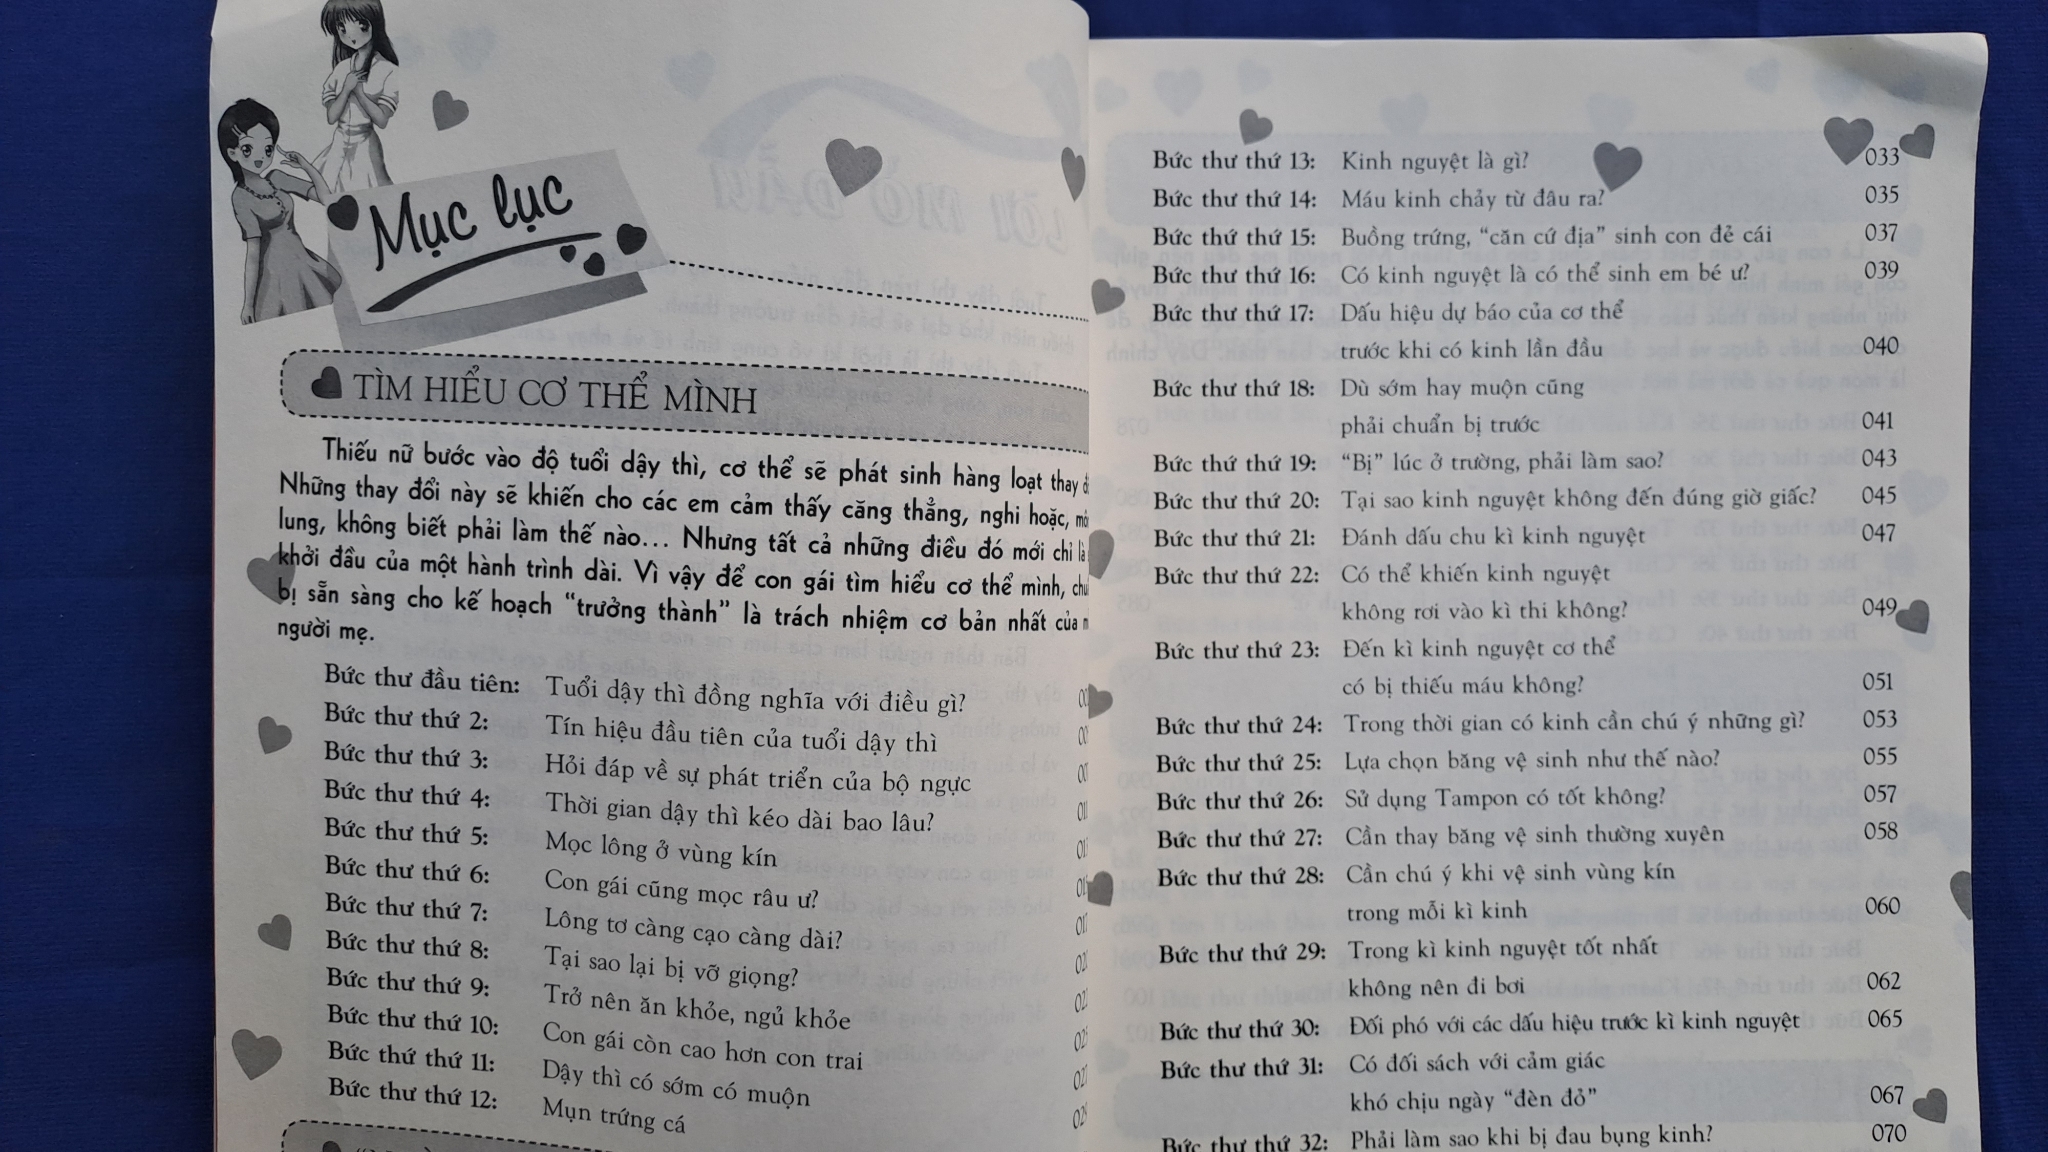 Mục lục
TÌM HIỂU CƠ THỂ MÌNH
Thiếu nữ bước vào độ tuổi dậy thì, cơ thể sẽ phát sinh hàng loạt thay
Những thay đổi này sẽ khiến cho các em cảm thấy căng thẳng, nghi hoặc,
lung, không biết phải làm thế nào... Nhưng tất cả những điều đó mới chỉ là
khởi đầu của một hành trình dài. Vì vậy để con gái tìm hiểu cơ thể mình,
bị sẵn sàng cho kế hoạch “trưởng thành” là trách nhiệm cơ bản nhất của
người mẹ.
Bức thư đầu tiên: Tuổi dậy thì đồng nghĩa với điều gì?
Bức thư thứ 2: Tín hiệu đầu tiên của tuổi dậy thì
Bức thư thứ 3: Hỏi đáp về sự phát triển của bộ ngực
Bức thư thứ 4: Thời gian dậy thì kéo dài bao lâu?
Bức thư thứ 5: Mọc lông ở vùng kín
Bức thư thứ 6: Con gái cũng mọc râu ư?
Bức thư thứ 7: Lông tơ càng cạo càng dài?
Bức thư thứ 8: Tại sao lại bị vỡ giọng?
Bức thư thứ 9: Trở nên ăn khỏe, ngủ khỏe
Bức thư thứ 10: Con gái còn cao hơn con trai
Bức thứ thứ 11: Dậy thì có sớm có muộn
Bức thư thứ 12: Mụn trứng cá
Bức thư thứ 13: Kinh nguyệt là gì? 033
Bức thư thứ 14: Máu kinh chảy từ đâu ra? 035
Bức thứ thứ 15: Buồng trứng, “căn cứ địa” sinh con đẻ cái 037
Bức thư thứ 16: Có kinh nguyệt là có thể sinh em bé ư? 039
Bức thư thứ 17: Dấu hiệu dự báo của cơ thể
trước khi có kinh lần đầu 040
Bức thư thứ 18: Dù sớm hay muộn cũng
phải chuẩn bị trước 041
Bức thứ thứ 19: “Bị” lúc ở trường, phải làm sao? 043
Bức thư thứ 20: Tại sao kinh nguyệt không đến đúng giờ giấc? 045
Bức thư thứ 21: Đánh dấu chu kì kinh nguyệt 047
Bức thư thứ 22: Có thể khiến kinh nguyệt
không rơi vào kì thi không? 049
Bức thư thứ 23: Đến kì kinh nguyệt cơ thể
có bị thiếu máu không? 051
Bức thư thứ 24: Trong thời gian có kinh cần chú ý những gì? 053
Bức thư thứ 25: Lựa chọn băng vệ sinh như thế nào? 055
Bức thư thứ 26: Sử dụng Tampon có tốt không? 057
Bức thư thứ 27: Cần thay băng vệ sinh thường xuyên 058
Bức thư thứ 28: Cần chú ý khi vệ sinh vùng kín
trong mỗi kì kinh 060
Bức thư thứ 29: Trong kì kinh nguyệt tốt nhất
không nên đi bơi 062
Bức thư thứ 30: Đối phó với các dấu hiệu trước kì kinh nguyệt 065
Bức thư thứ 31: Có đối sách với cảm giác
khó chịu ngày “đèn đỏ” 067
Bức thư thứ 32: Phải làm sao khi bị đau bụng kinh? 070